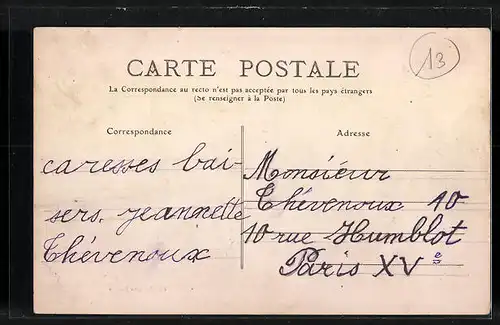 13
CARTE POSTALE
La Correspondance au recto n'est pas acceptée par tous les pays étrangers
(Se renseigner à la Poste)
Correspondance
caresses bai-
sers. jeannette
Thévenoux
Adresse
Monsieur
Thévenoux 10
10 rue Humblot
Paris XVe